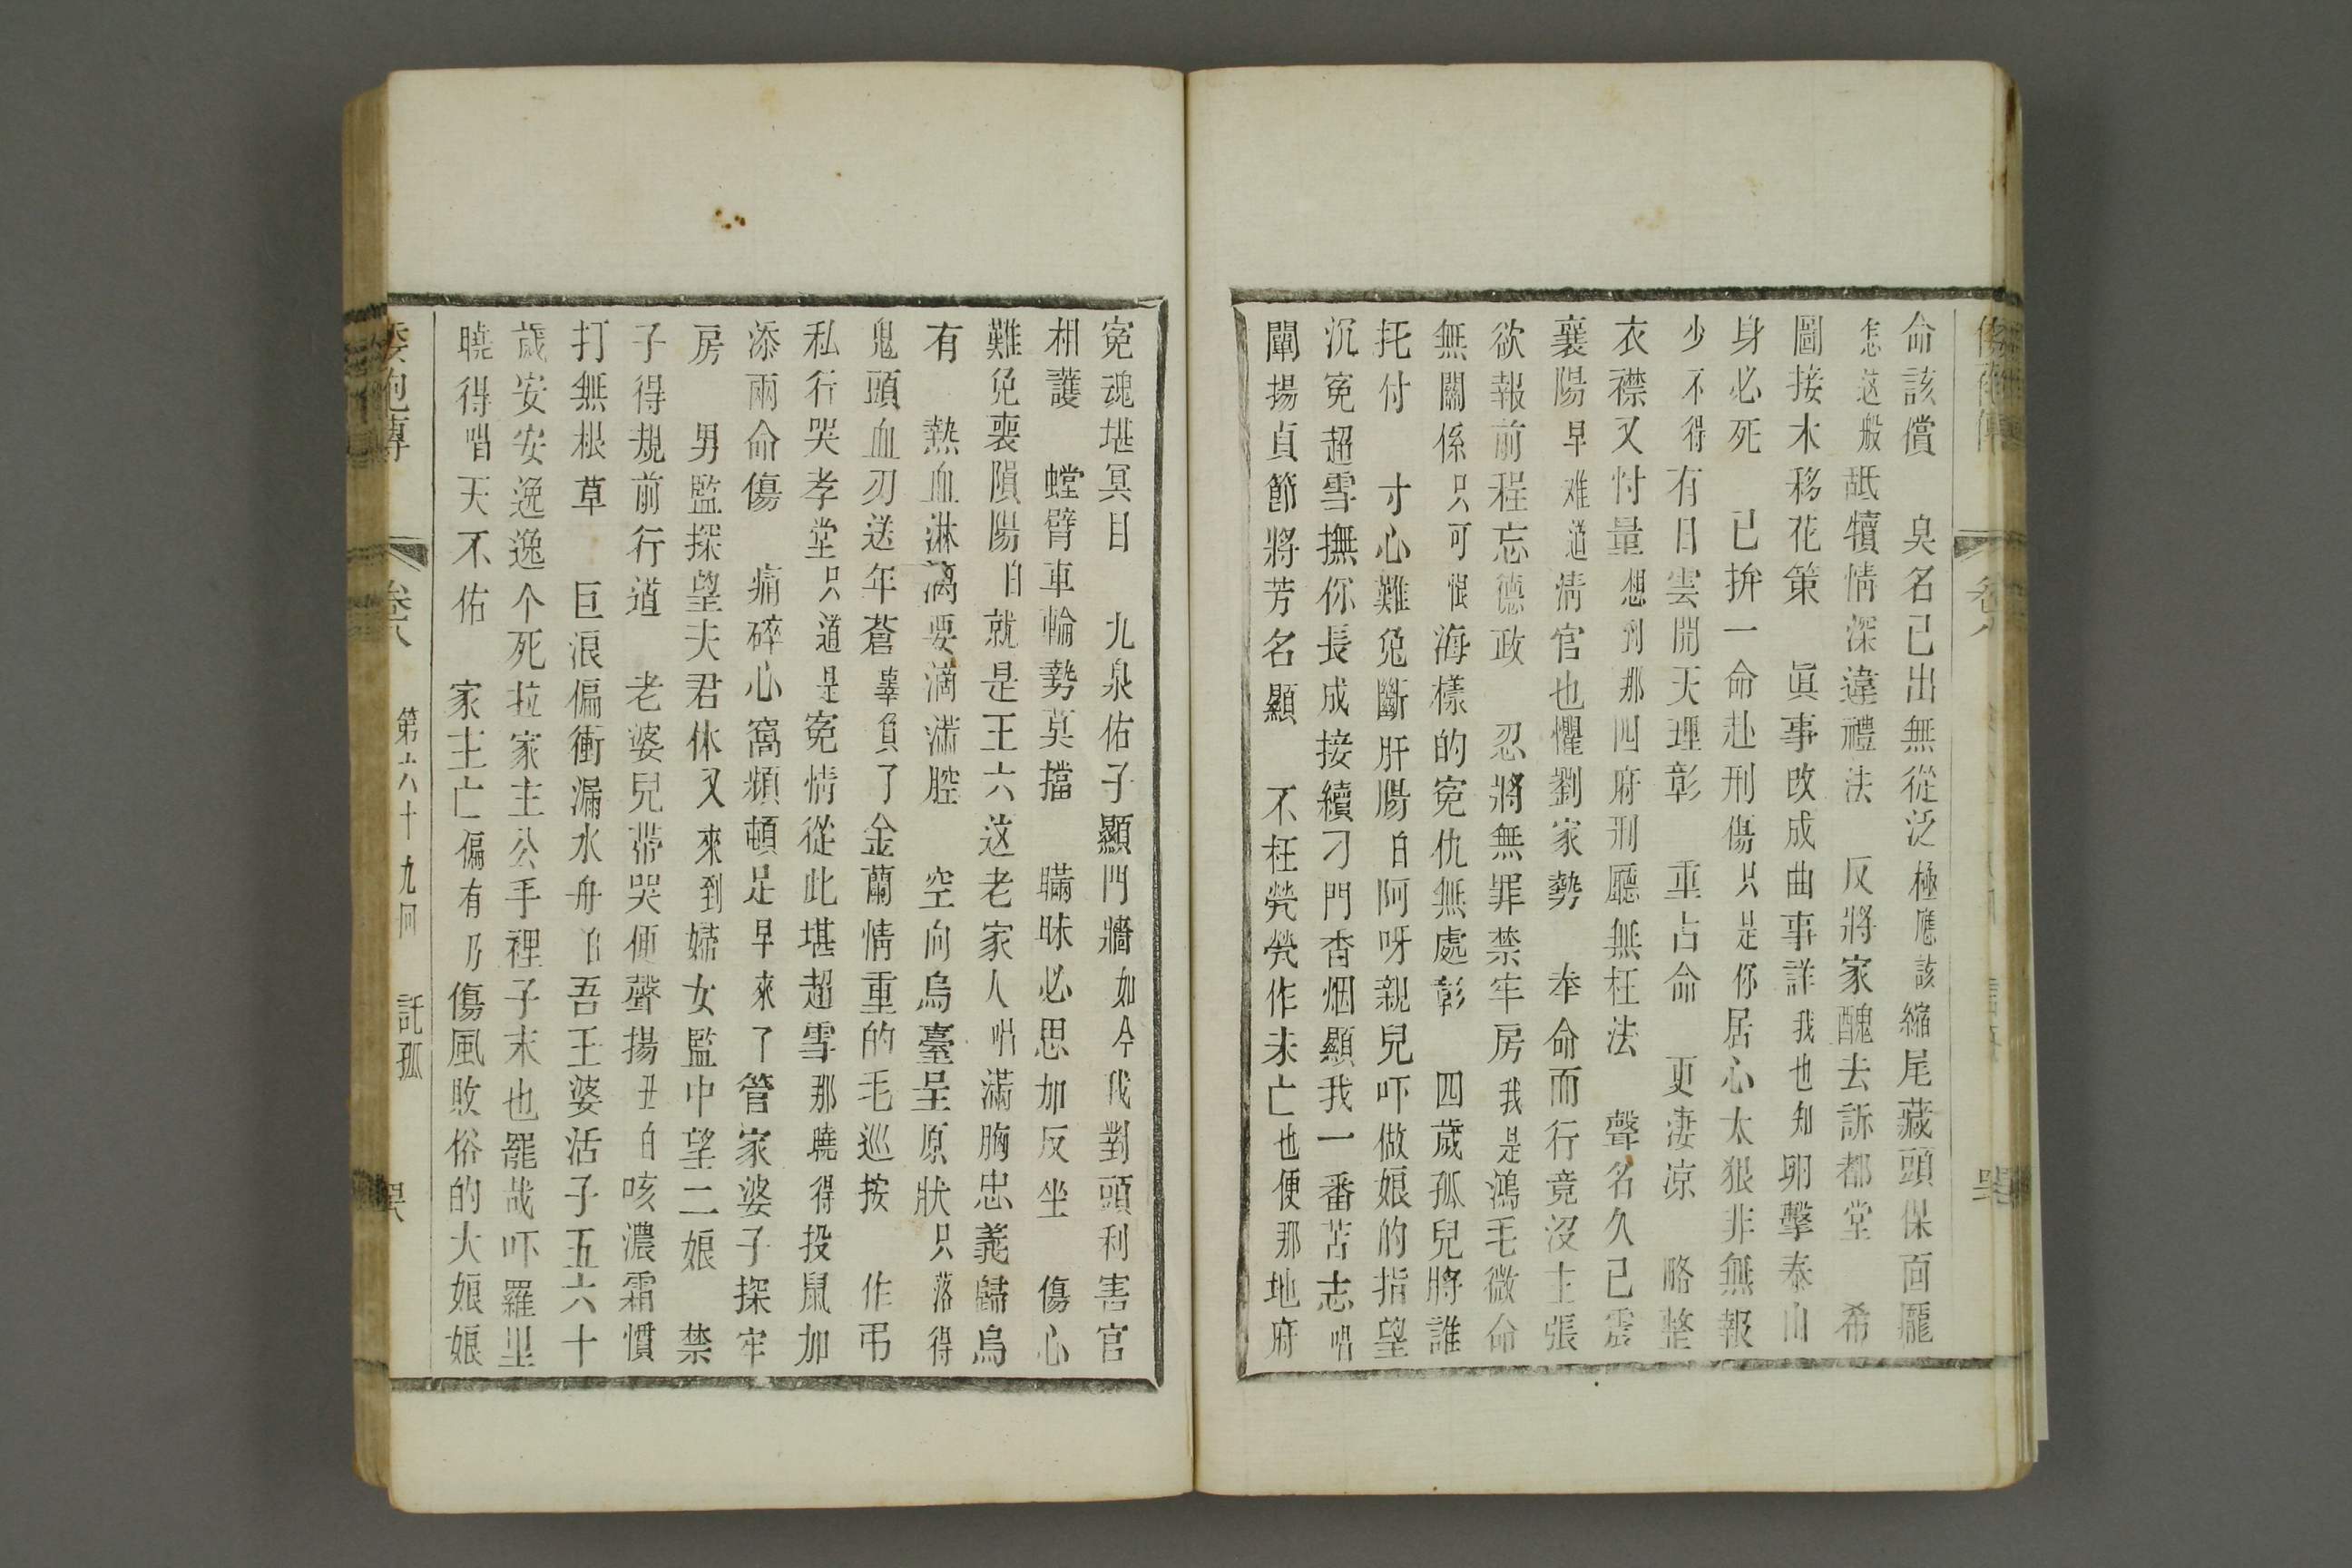 命該償　臭名已出無從泛極應該縮尾藏頭保面龎
怎这般詆犢情深違禮法　反將家醜去訴都堂　希
圖接木移花策　眞事改成曲事詳我也知卵擊泰山
身必死　已拚一命赴刑傷只是你居心太狠非無報
少不得有日雲開天理彰　重占命　更凄凉　略整
衣襟又忖量想刑那四府刑廳無枉法　聲名久已震
襄陽早难道清官也懼劉家勢　奉命而行竟沒主張
欲報前程忘德政　忍將無罪禁牢房我是鴻毛微命
無關係只可恨海樣的寃仇無處彰　四歲孤兒將誰
托付　寸心難免斷肝腸白阿呀親兒吓做娘的指望
沉寃超雪撫你長成接續刁門香烟顯我一番苦志唱
闡揚貞節將芳名顯　不枉煢煢作未亡也便那地府
寃魂堪冥目　九泉佑子顯門牆如今代對頭利害官
相護　螳臂車輪勢莫擋　瞞昧必思加反坐　傷心
難免喪隕陽白就是王六这老家人唱滿胸忠義歸烏
有　熱血淋漓要滴滿腔　空向烏臺呈原狀只落得
鬼頭血刃送年蒼辜負了金蘭情重的毛巡按　作弔
私行哭孝堂只道是寃情從此堪超雪那曉得投鼠加
添兩命傷　痛碎心窩頻頓足早來了管家婆子探牢
房　男監探望夫君休又來到婦女監中望二娘　禁
子得規前行道　老婆兒帶哭便聲揚丑白咳濃霜慣
打無根草　巨浪偏衝漏水舟白吾王婆活子五六十
歲安安逸逸个死拉家主公手裡子末也罷哉吓羅里
曉得唱天不佑　家主亡偏有乃傷風敗俗的大娘娘
卷八　第六十九回　託孤